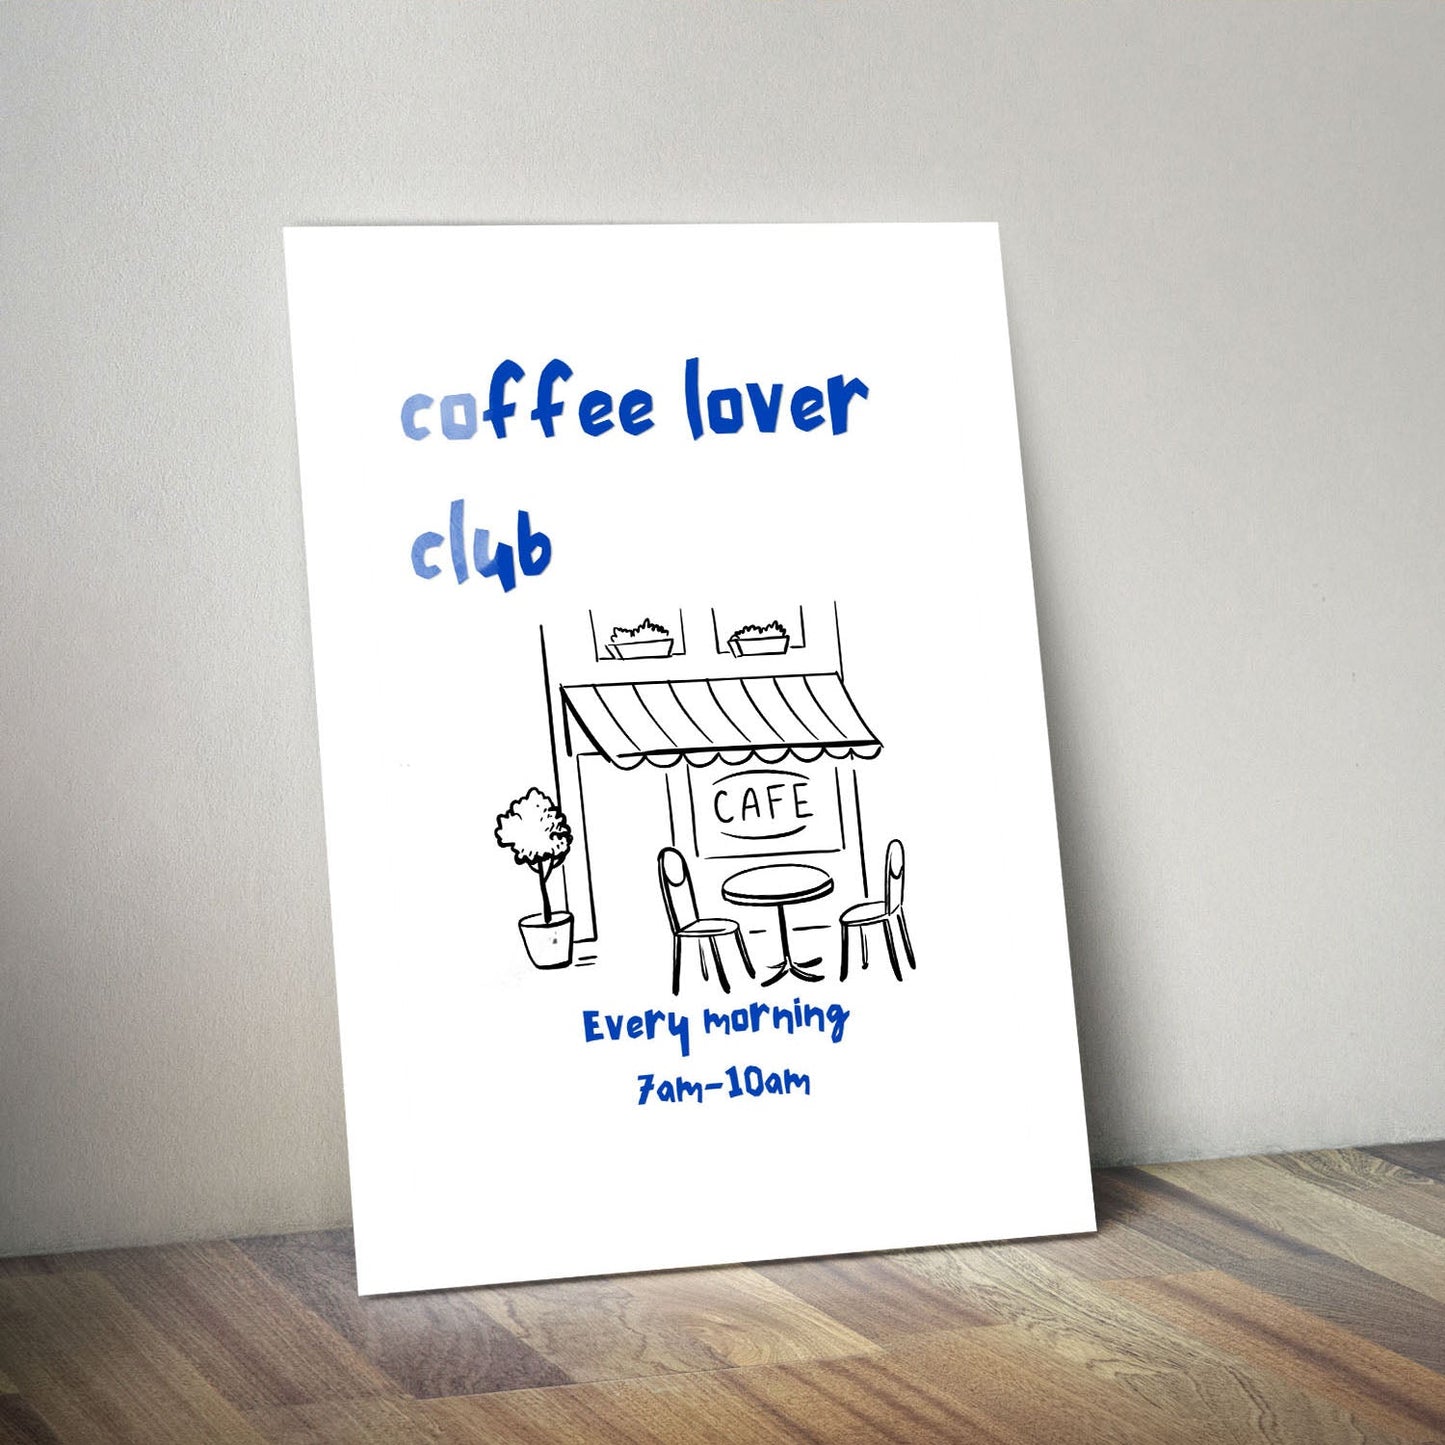 coffee lover
club
CAFE
Every morning
7am-10am